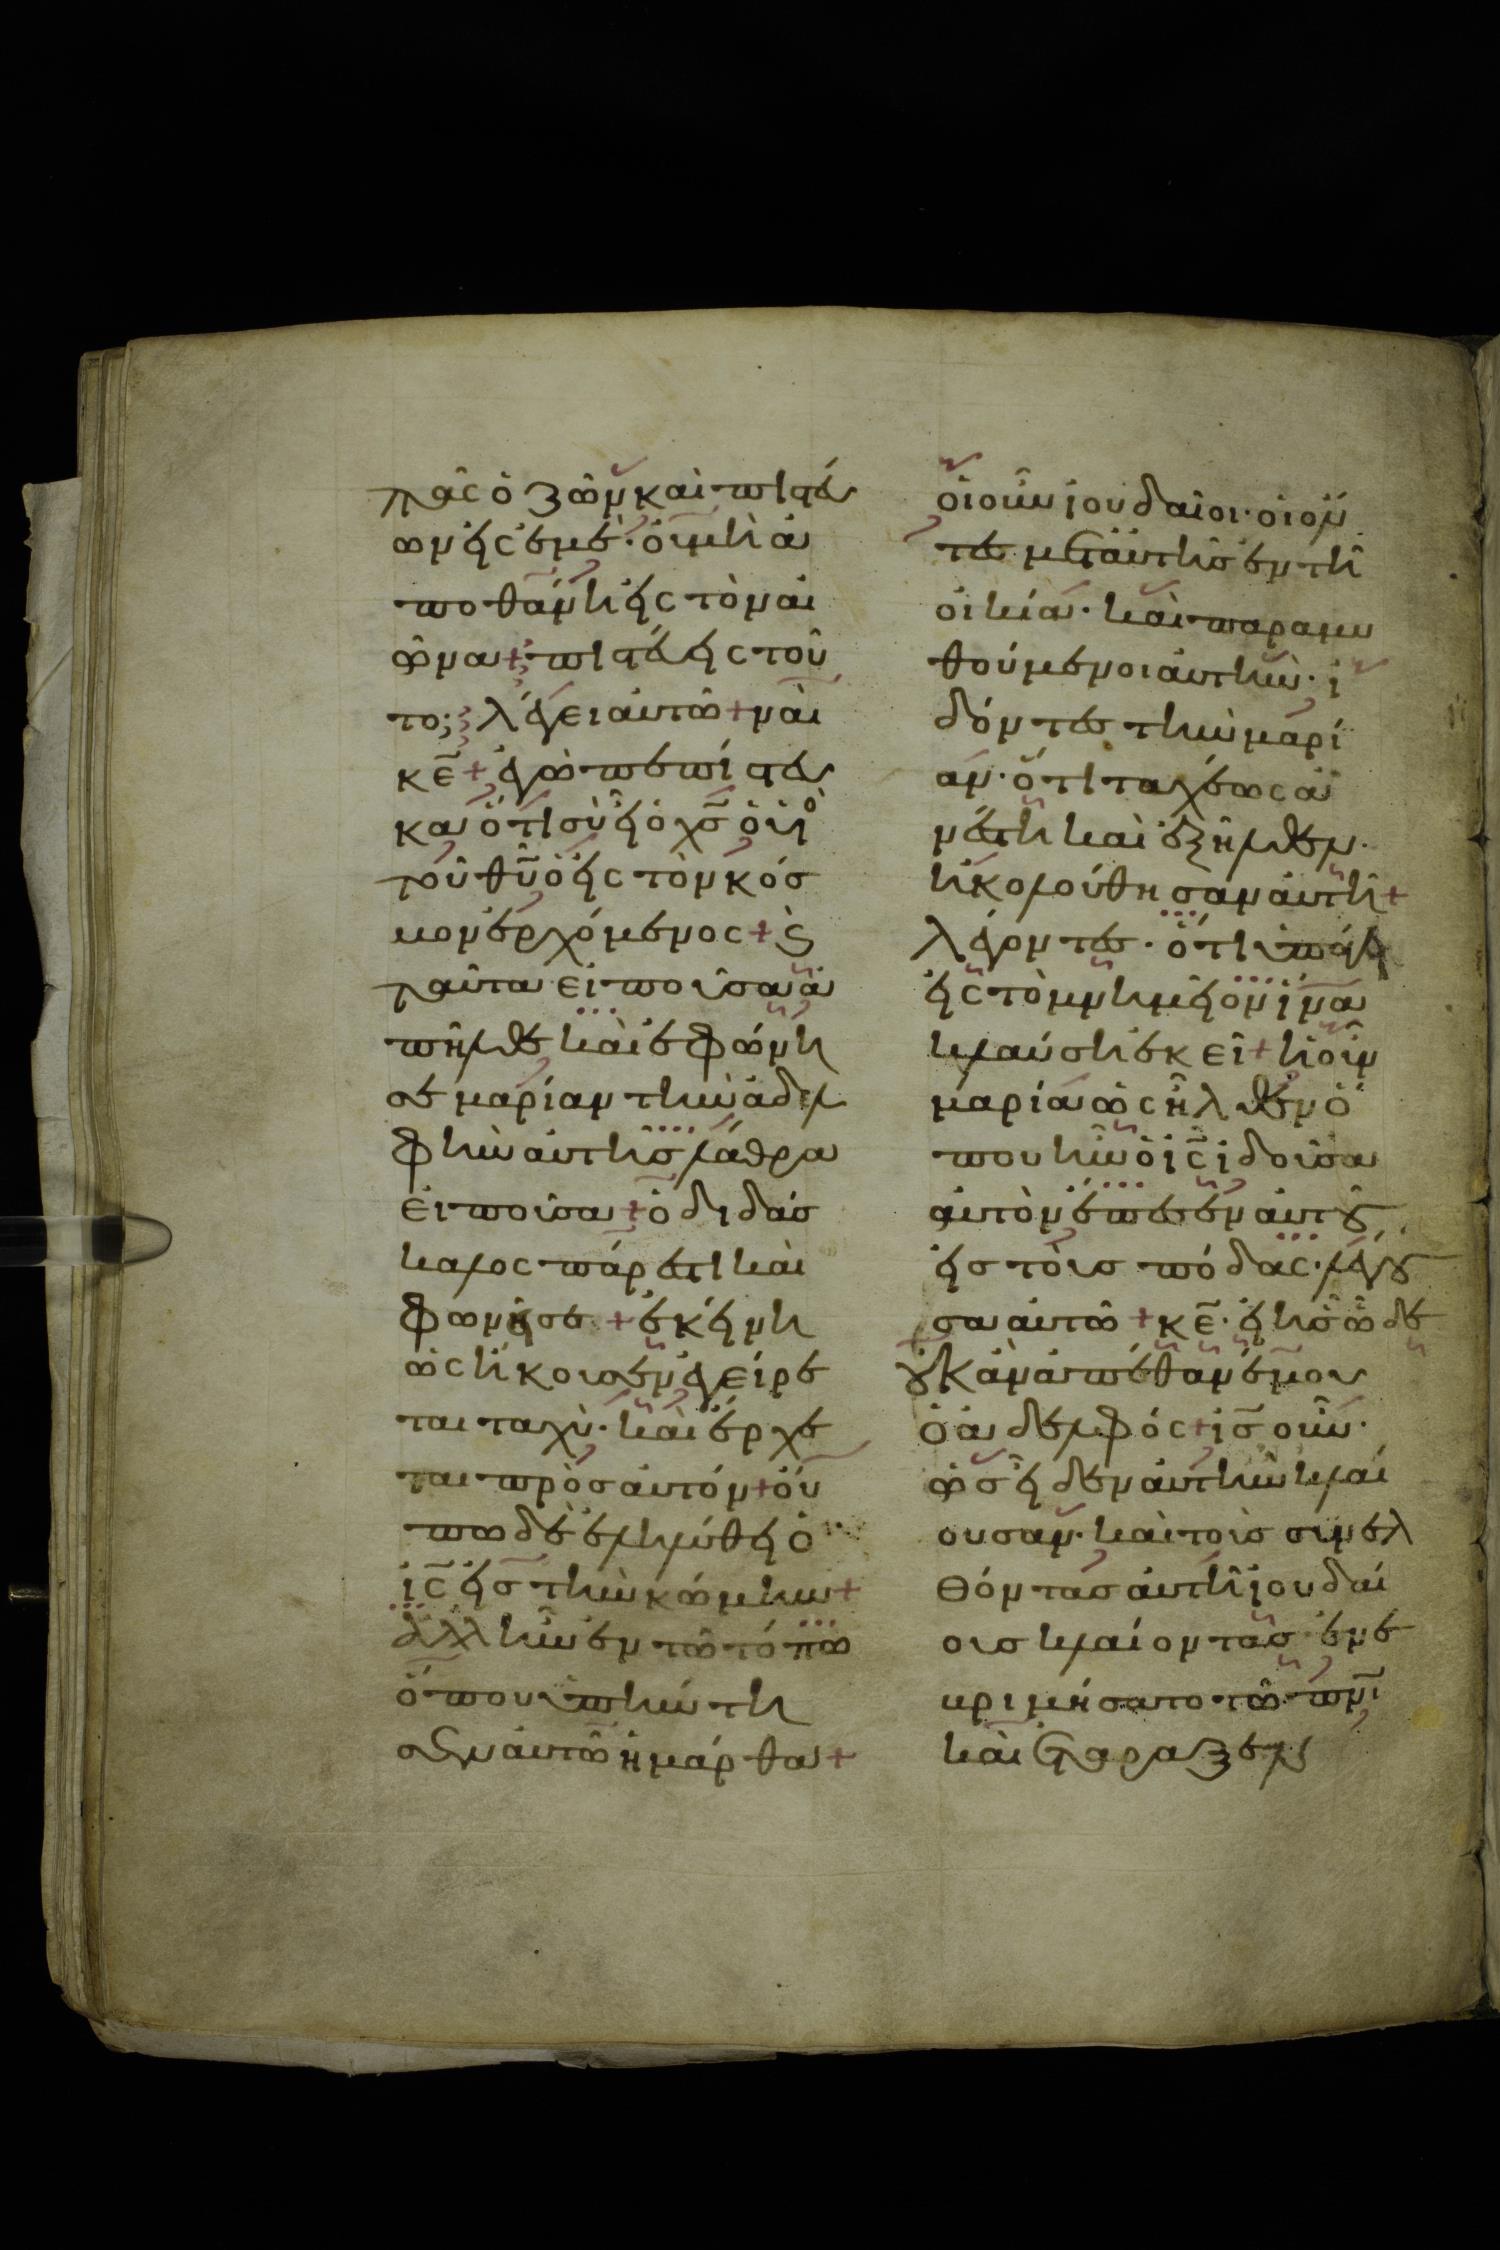 πᾶς ὁ ζῶν καὶ πιστεύ
ων εἰς ἐμὲ· οὐ μὴ ἀ
ποθάνη εἰς τὸν αἰ
ῶνα + πιστεύεις τοῦ
το; λέγει αὐτῶ + ναὶ
κε̄ + ἐγὼ πεπίστευ
κα ὅτι σὺ εἶ ὁ χσ̄ ὁ υἱὸ
τοῦ θῡ ὁ εἰς τὸν κόσ
μον ἐρχόμενος + ϗ
ταῦτα εἰποῦσα ἀ
πῆλθε καὶ ἐφώνη
σε μαρίαν τὴν ἀδελ
φὴν αὐτῆς λάθρα
εἰποῦσα + ὁ διδάσ
καλος πάρεστι καὶ
φωνεῖ σε + ἐκείνη
ὡς ἤκουσεν ἐγείρε
ται ταχὺ· καὶ ἔρχε
ται πρὸς αὐτόν + οὔ
πω δὲ ἐληλύθει ὁ
ις̄ εἰς τὴν κώμην +
ἀλλ ἦν ἐν τῶ τόπω
ὅπου ὑπήντη
σεν αὐτῶ ἡ μάρθα +
οἱ οὖν ἰουδαῖοι· οἱ ὄν
τες μετ αὐτῆς ἐν τῆ
οἰκία· καὶ παραμυ
θούμενοι αὐτὴν· ἰ
δόντες τὴν μαρί
αν· ὅτι ταχέως ἀ
νέστη καὶ ἐξῆλθεν·
ἠκολούθησαν αὐτῆ +
λέγοντες· ὅτι ὑπάγει
εἰς τὸ μνημεῖον ἵνα
κλαύση ἐκεῖ + ἡ οὖν
μαρία ὡς ἦλθεν ὅ
που ἦν ὁ ις̄ ἰδοῦσα
αὐτὸν ἔπεσεν αὐτοῦ
εἰς τοὺς πόδας· λέγου
σα αὐτῶ + κε̄· εἰ ἦς ὧδε
οὐκ ἂν ἀπέθανέ μου
ὁ ἀδελφός + ισ̄ οὖν·
ὡς εἶδεν αὐτὴν κλαί
ουσαν· καὶ τοὺς συνελ
θόντας αὐτῆ ἰουδαί
ους κλαίοντας ἐνε
βριμήσατο τῶ πνῑ
καὶ ἐταραξεν